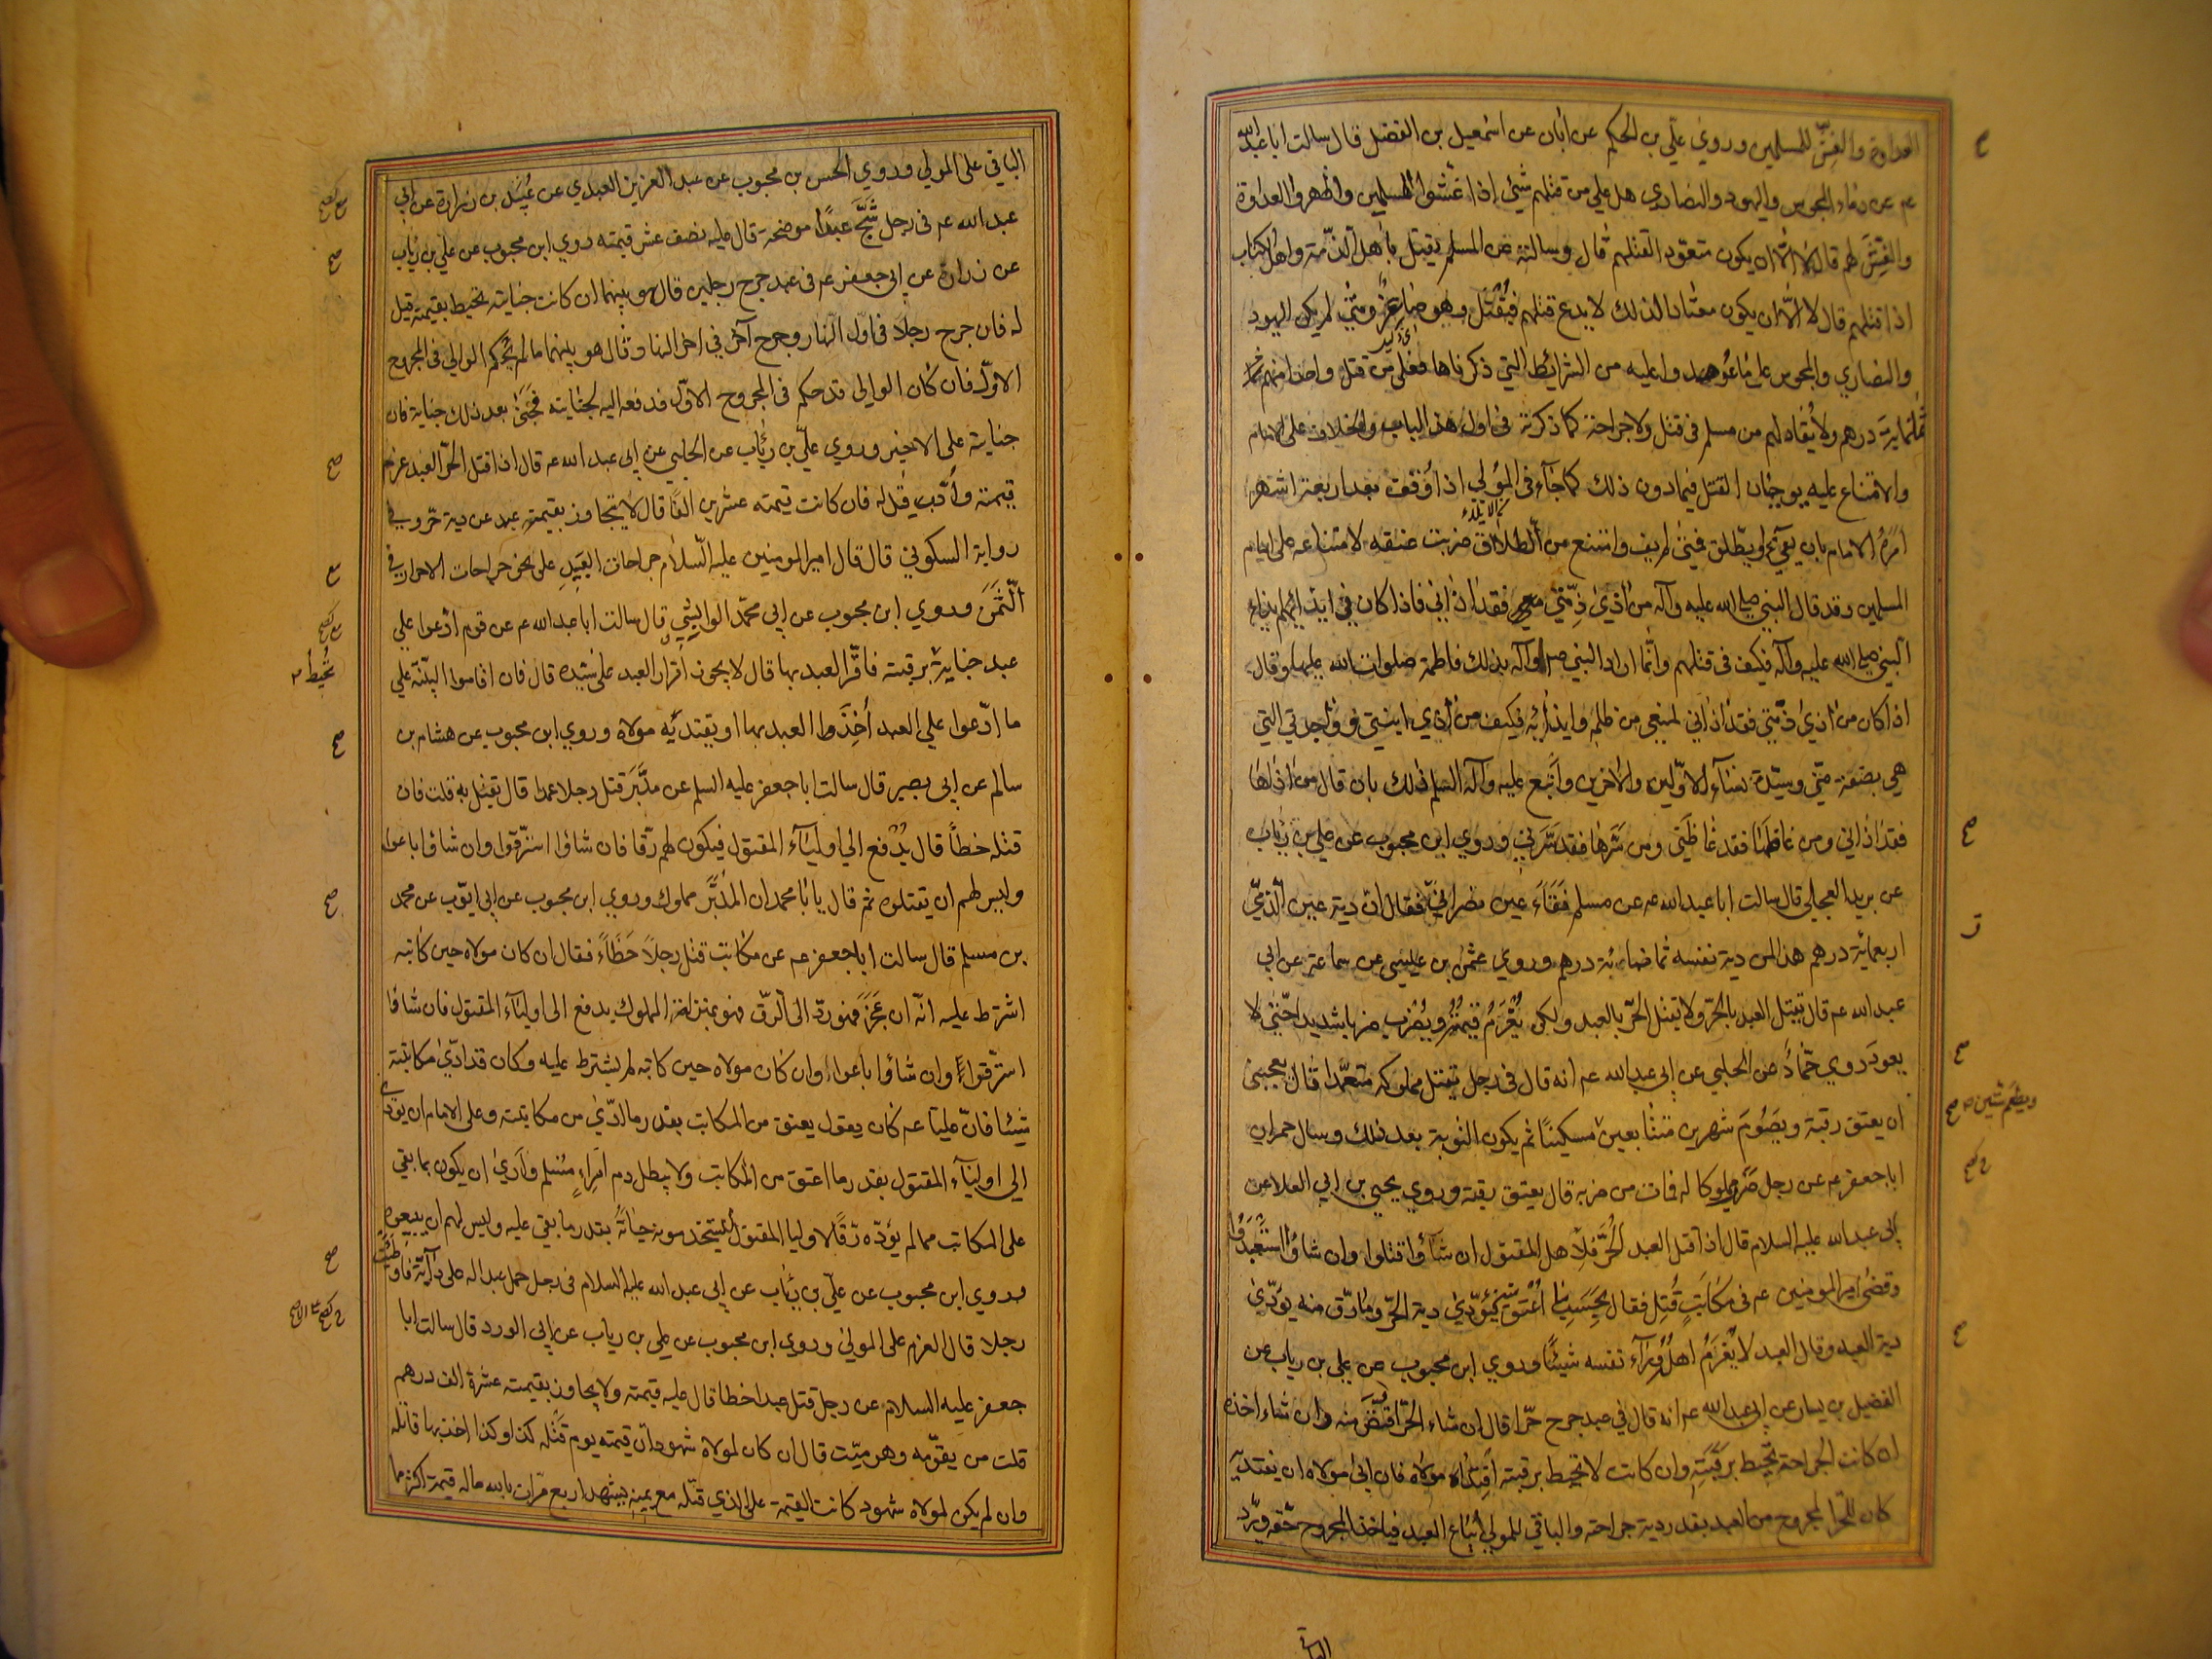 العداوة والغش للمسلمين وروي علي بن الحكم عن ابان عن اسمعيل بن الفضل قال سالت ابا عبد الله
عم عن دماء المجوس واليهود والنصاري هل علي من قتلهم شئ اذا غشوا المسلمين واظهروا العداوة
والغش لهم قال لا الا ان يكون متعود القتلهم قال وسالته عن المسلم يقتل باهل الذمة واهل الكتاب
اذا قتلهم قال لا الا ان يكون معتادا لذلك لا يدع قتلهم فيقتل وهو صاغر ومتي لم يكن اليهود
والنصاري والمجوس علي ما عوهدوا عليه من الشرائط التي ذكرناها فعلي من قتل واحدا منهم
ثلثماية درهم ولا يقاد لهم من مسلم في قتل ولا جراحة كما ذكرته في اول هذا الباب والخلاف علي الامام
والامتناع عليه يوجبان القتل فيما دون ذلك كما جاء في المولي اذا وقف بعد اربعة اشهر
امره الامام بان يفئ او يطلق فمتي لم يفئ وامتنع من الطلاق ضربت عنقه لامتناعه علي امام
المسلمين وقد قال النبي صلي الله عليه وآله من آذي ذمتي فقد آذاني فاذا كان في ايذائهم ايذاء
النبي صلي الله عليه وآله فكيف في قتلهم وانما اراد النبي ص وآله بذلك فاطمة صلوات الله عليها وقال
اذا كان من آذي ذمتي فقد آذاني لمنعي من ظلمه وايذائه فكيف من آذي ابنتي وواحدتي التي
هي بضعة مني وسيدة نساء الاولين والاخرين واتبع عليه وآله السلم ذلك بان قال من آذاها
فقد آذاني ومن غاظها فقد غاظني ومن سرها فقد سرني وروي ابن محبوب عن علي بن رئاب
عن بريد العجلي قال سالت ابا عبد الله عم عن مسلم فقاء عين نصراني فقال ان دية عين الذمي
اربعمائة درهم هذا لمن دية نفسه ثمانمائة درهم وروي عثمن بن عيسي عن سماعة عن ابي
عبد الله عم قال يقتل العبد بالحر ولا يقتل الحر بالعبد ولكن يغرم قيمته ويضرب ضربا شديدا حتي لا
يعود روي حماد عن الحلبي عن ابي عبد الله عم انه قال في رجل يقتل مملوكه متعمدا قال يعجبني
ان يعتق رقبة ويصوم شهرين متتابعين مسكينا ثم يكون التوبة بعد ذلك وسال حمران
ابا جعفر عم عن رجل ضرب مملوكا له فمات من ضربه قال يعتق رقبة وروي يحيي بن ابي العلا عن
ابي عبد الله عليه السلام قال اذا قتل العبد الحر فلاهل المقتول ان شاؤا قتلوا وان شاؤا استعبدوا
وقضي امير المومنين عم في مكاتب قتل فقال يحسب ما اعتق منه فيؤدي دية الحر وما رق منه يؤدي
دية العبد وقال العبد لا يغرم اهله وراء نفسه شيئا وروي ابن محبوب عن علي بن رياب عن
الفضيل بن يسار عن ابي عبد الله عم انه قال في عبد جرح حرا قال ان شاء الحر اقتص منه وان شاء اخذه
ان كانت الجراحة تحيط برقبته وان كانت لا تحيط برقبته افتداه مولاه فان ابي مولاه ان يفتديه
كان للحر المجروح من العبد بقدر دية جراحته والباقي للمولي يباع العبد فياخذ المجروح حقه ويرد
ويطعم ستين صح
الباقي علي المولي وروي الحسن بن محبوب عن عبد العزيز العبدي عن عبيد بن زرارة عن ابي
عبد الله عم في رجل شج عبدا موضحة قال عليه نصف عشر قيمته روي ابن محبوب عن علي بن رئاب
عن زرارة عن ابي جعفر عم في عبد جرح رجلين قال هو بينهما ان كانت جنايته تحيط بقيمته قيل
له فان جرح رجلا في اول النهار وجرح آخر في اخر النهار قال هو بينهما ما لم يحكم الوالي في المجروح
الاول فان كان الوالي قد حكم في المجروح الاول فدفعه اليه لجنايته فجني بعد ذلك جناية فان
جناية علي الاخير وروي علي بن رئاب عن الحلبي عن ابي عبد الله عم قال اذا قتل الحر العبد غرم
قيمته وادب قيل له فان كانت قيمته عشرين الفا قال لا يتجاوز بقيمة عبد عن دية حر وفي
رواية السكوني قال قال امير المومنين عليه السلام جراحات العبيد علي نحو جراحات الاحرار في
الثمن وروي ابن محبوب عن ابي محمد الوابشي قال سالت ابا عبد الله عم عن قوم ادعوا علي
عبد جناية برقبته فاقر العبد بها قال لا يجوز اقرار العبد علي سيده قال فان اقاموا البينة علي
ما ادعوا علي العبد اخذوا العبد بها او يفتديه مولاه وروي ابن محبوب عن هشام بن
سالم عن ابي بصير قال سالت ابا جعفر عليه السلم عن مدبر قتل رجلا عمدا قال يقتل به قلت فان
قتله خطأ قال يدفع الي اولياء المقتول فيكون لهم رقا فان شاؤا استرقوا وان شاؤا باعوا
وليس لهم ان يقتلوه ثم قال يا با محمد ان المدبر مملوك وروي ابن محبوب عن ابي ايوب عن محمد
بن مسلم قال سالت ابا جعفر عم عن مكاتب قتل رجلا خطاء فقال ان كان مولاه حين كاتبه
اشترط عليه انه ان عجز فهو رد الي الرق فهو بمنزلة المملوك يدفع الي اولياء المقتول فان شاؤا
استرقوا وان شاؤا باعوا وان كان مولاه حين كاتبه لم يشترط عليه وكان قد ادي مكاتبته
شيئا فان عليا عم كان يقول يعتق من المكاتب بقدر ما ادي من مكاتبته وعلي الامام ان يؤدي
الي اولياء المقتول بقدر ما اعتق من المكاتب ولا يبطل دم امراء مسلم واري ان يكون بما بقي
علي المكاتب مما لم يؤده رقا لاوليا المقتول يستخدمونه حياته بقدر ما بقي عليه وليس لهم ان يبيعوه
وروي ابن محبوب عن علي بن رئاب عن ابي عبد الله عليه السلام في رجل حمل عبدا له علي دابة فاوطئت
رجلا قال الغرم علي المولي وروي ابن محبوب عن علي بن رياب عن ابي الورد قال سالت ابا
جعفر عليه السلام عن رجل قتل عبدا خطا قال عليه قيمته ولا يجاوز بقيمته عشرة الف درهم
قلت من يقومه وهو ميت قال ان كان لمولاه شهود ان قيمته يوم قتله كذا وكذا اخذ بها قاتله
وان لم يكن لمولاه شهود كانت القيمة علي الذي قتله مع يمينه يشهد اربع مرات بالله ماله قيمة اكثر مما